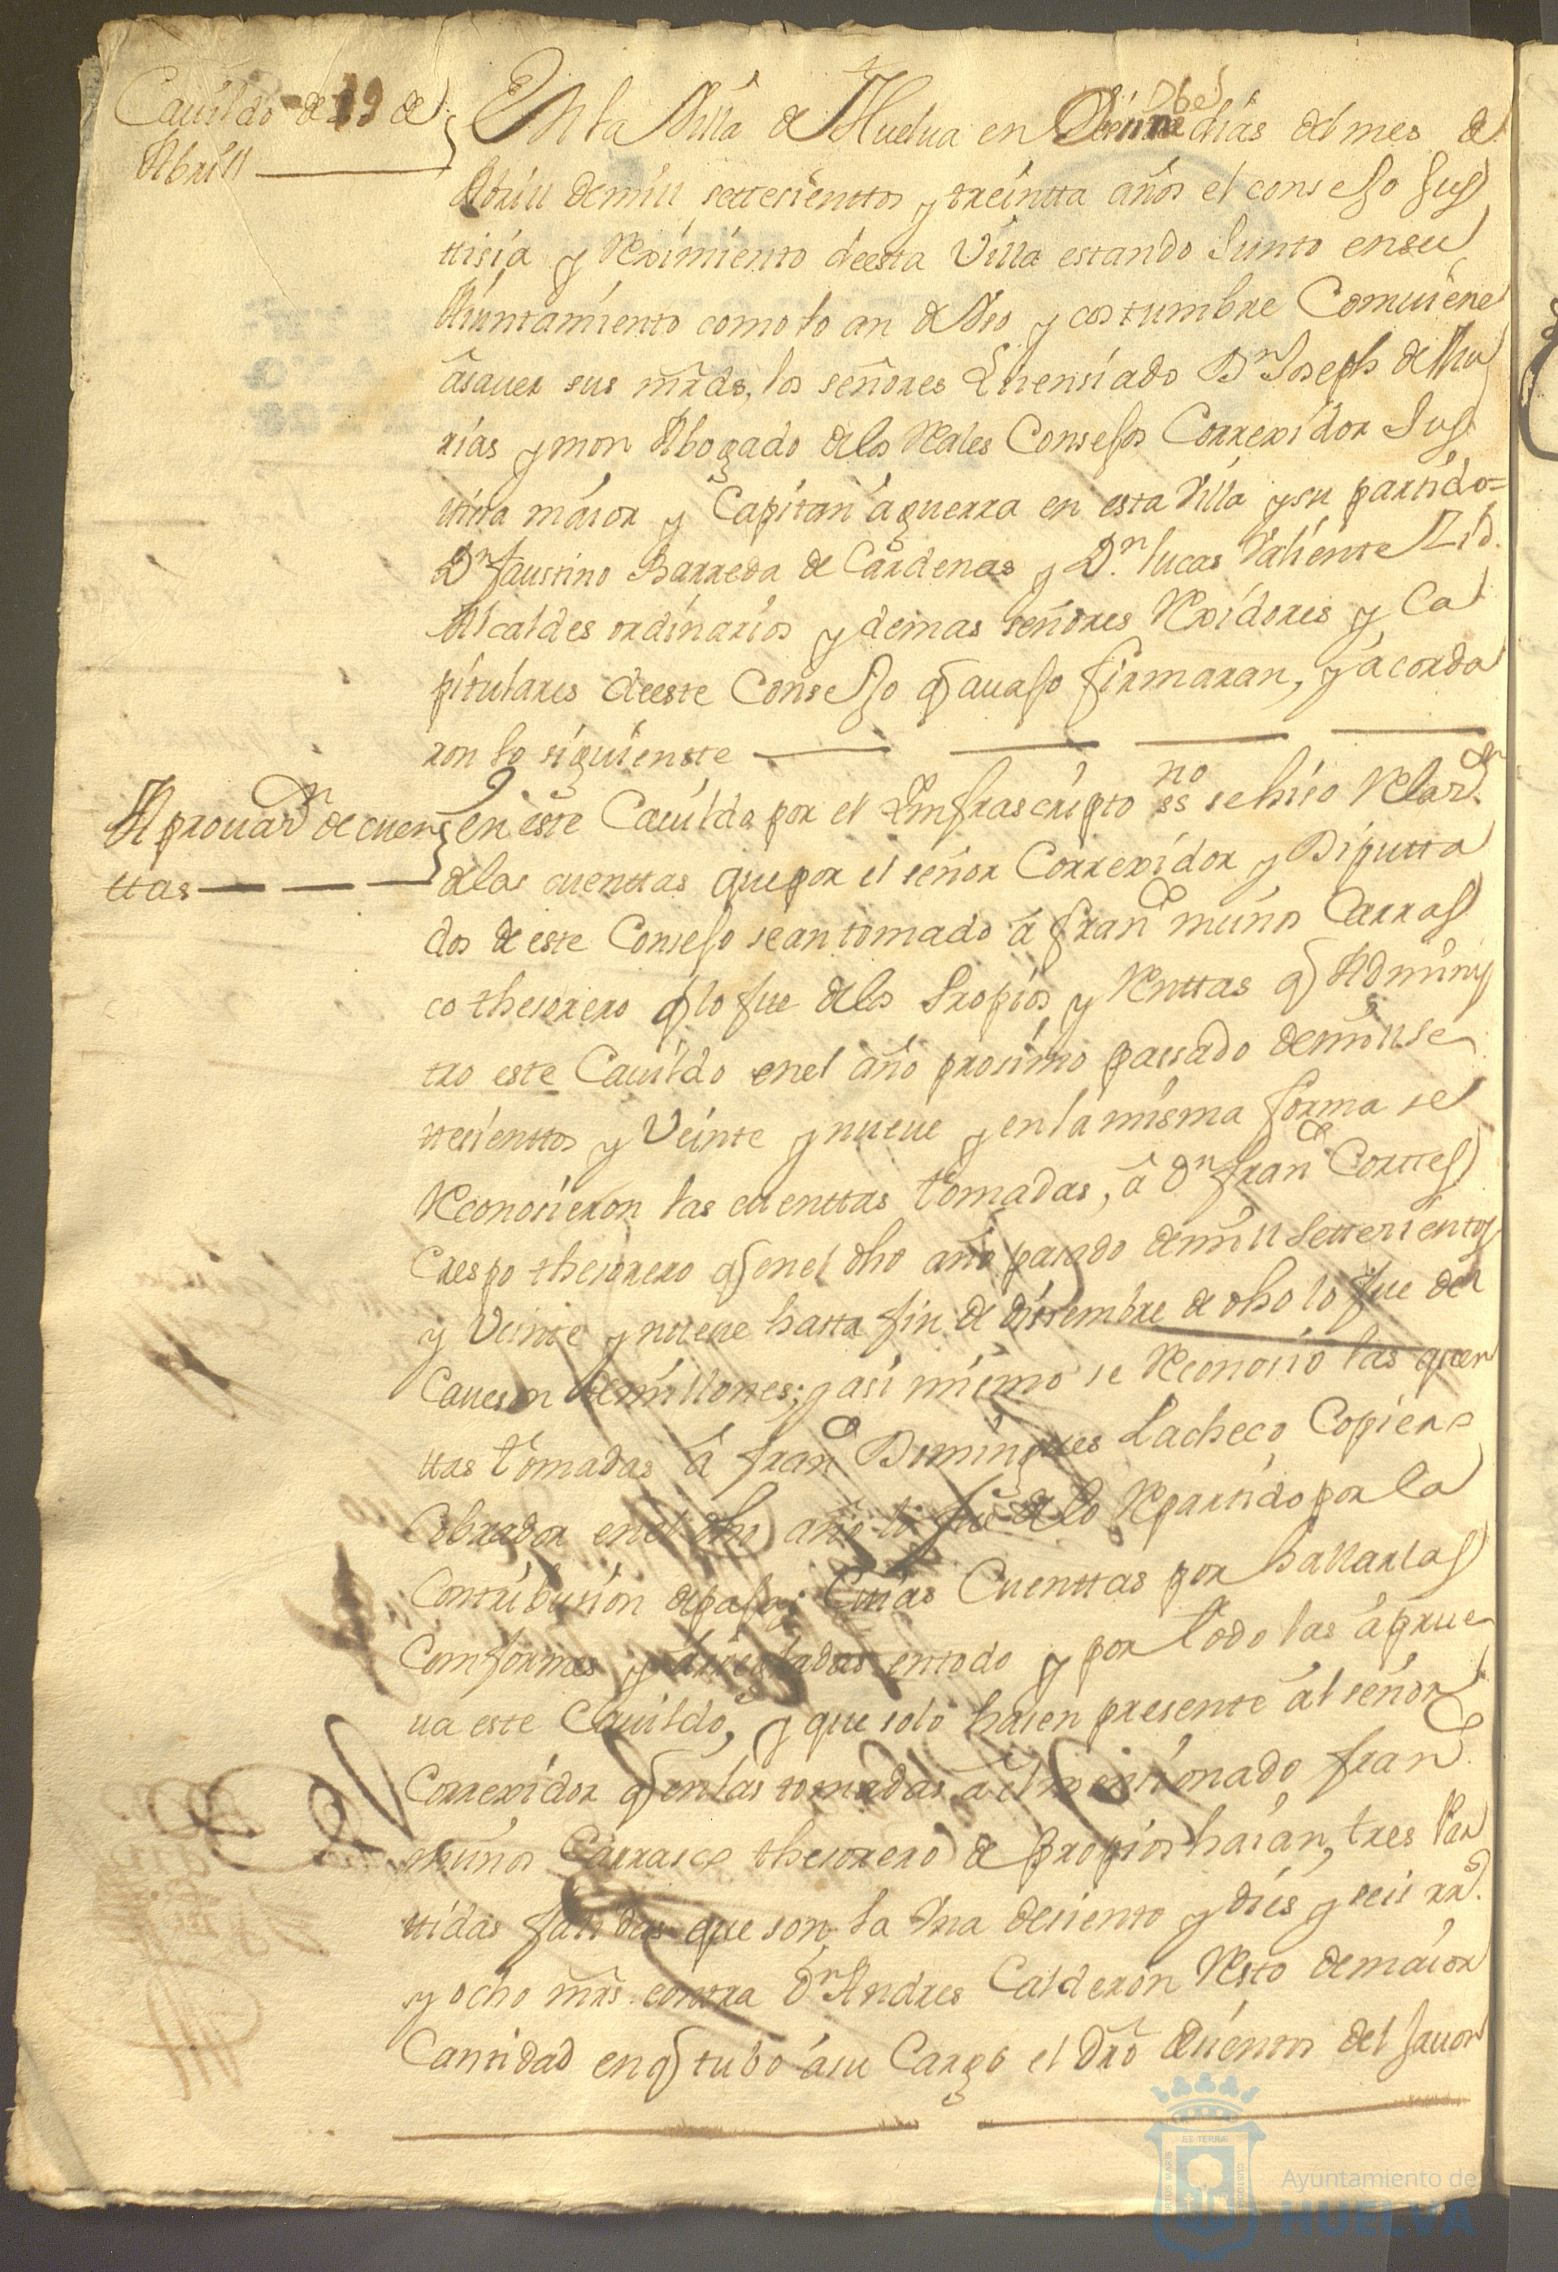 Cauildo de 19 de
Abrill
En la Villa de Huelua en dias del mes de
Abrill de mill settesienttos y treintta años el consejo Jus
ttisia y Reximiento de esta Villa estando Junto en su
Aiuntamiento como lo an de Uso y costumbre Comuiene
asauer sus mrds, los señores Lisensiado Dn Joseph de Mu
rias ymon Abogado de los Reales Consejos Correxidor Jus
titia maior y Capitan aguerra en esta Villa y su partido=
Dn faustino Barreda de Cardenas y Dn lucas Valiente
Alcaldes ordinarios y demas señores Rexidores y Ca
pitulares de este Consejo q auajo firmaran, y acorda
ron lo siguienste
Aprouaón de cuen
ttas
en este Cauildo por el Imfrascripto ssno se hiso Relaón
de las cuenttas que por el señor Correxidor y Diputta
dos de este Consejo se an tomado á franco muños Carras
co thesorero q lo fue de los Propios y Renttas q Adminis
tro este Cauildo en el año prosimo passado de mill se
ttesienttos y Veinte y nueue y en la misma forma se
Reconosieron las cuenttas tomadas, á Dn franco Corttes
Crespo thesorero q en el dho año pasado de mill settesientos
y Veinte y nueue hasta fin de disiembre de dho lo fue del
Caueson de millones; y asi mismo se Reconosio las quen
ttas tomadas á franco Domingues Pacheco Copiero
Cobrador en el dho año lo fue de lo Repartido por la
Contribusion de paja; Cuias Cuenttas por hallarlas
Comformes y en todo y por todo las aprue
ua este Cauildo, y que solo hasen presente al señor
Correxidor q en las tomadas a el mensionado franco
muños Carrasco thesorero de propios haian, tres Par
ttidas fallidas que son la Una de siento y dies y seis rrs.
y ocho mrs. contra Dn Andres Calderon Resto de maior
Cantidad en q tubo a su Cargo el Dro de sientos del Jauon
ET TERRÆ
PORTUS MARIS
CUSTODIA
Ayuntamiento de
HUELVA